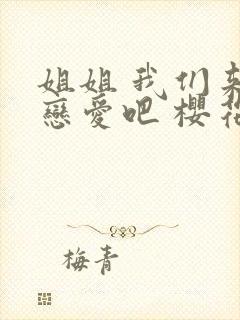 姐姐我们
戀愛吧 櫻
梅青